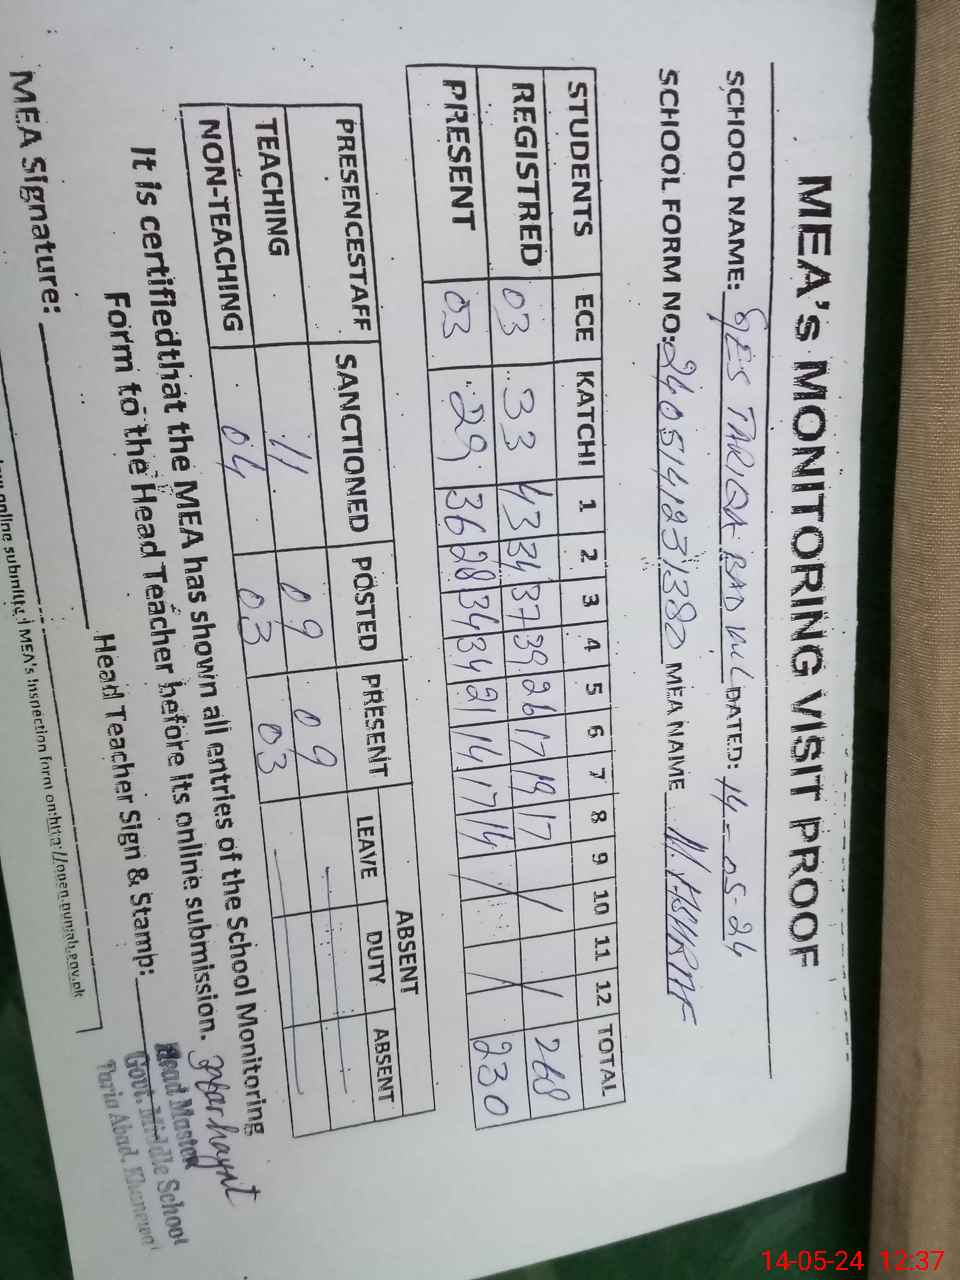 MEA's MONITORING VISIT PROOF
SCHOOL NAME: GES TARIQA BAD DATED: 14-05-24
SCHOOL FORM NO: MEA NAME M. ASHRAF
STUDENTS ECE KATCHI 1 2 3 4 5 6 7 8 9 10 11 12 TOTAL
REGISTRED 03 33 43 34 37 39 26 17 19 17 268
PRESENT 03 29 36 28 34 34 21 14 17 14 230
PRESENCESTAFF SANCTIONED POSTED PRESENT ABSENT
LEAVE DUTY ABSENT
TEACHING 11 09 09
NON-TEACHING 04 03 03
It is certifiedthat the MEA has shown all entries of the School Monitoring
Form to the Head Teacher before its online submission.
MEA Signature: Head Teacher Sign & Stamp:
Head Master
Govt. Middle School
Tariq Abad, Khanewal
online submitted MEA's Inspection form on:http://open.punjab.gov.pk
14-05-24 12:37